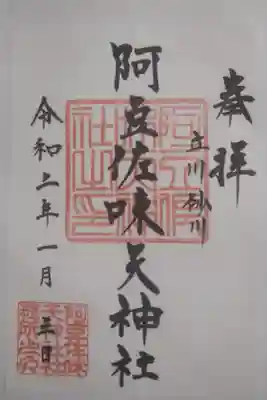 奉拝
立川砂川
阿豆佐味天神社
令和二年一月
三日